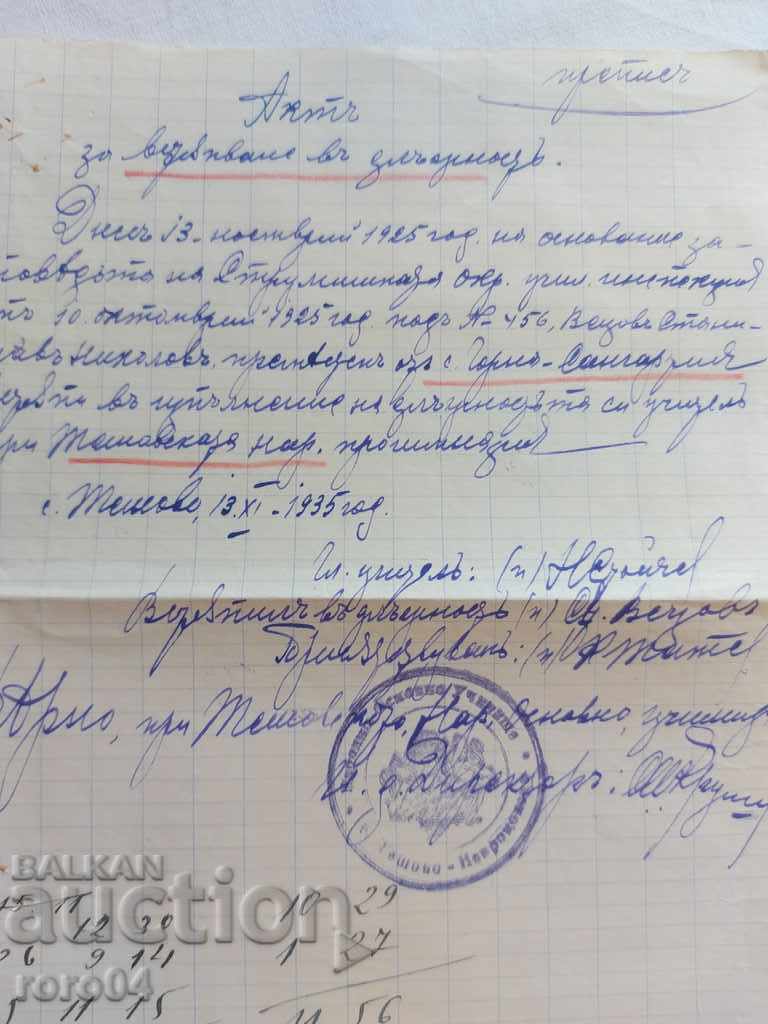 прѣписъ
Актъ
за встѫпване въ длъжность.
Днесъ 13. ноемврий 1925 год. на основание за-
повѣдьта на Струмишката окр. учил. инспекция
10. октомврий 1925 год. подъ № 456, Вецовъ Стани-
лавъ Николовъ, премѣстенъ отъ с. Горно-Сингартия
въ изпълнение на длъжностьта си учитель
при Тешовската нар. прогимназия
с. Тешово, 13. XI - 1935 год.
Гл. учитель: (п)
Встѫпилъ въ длъжность (п) Ст. Вецовъ
(п)
Вѣрно, при Тешовското Нар. Основно училище
Директоръ:
Народно Основно Училище
Тешово - Неврокопско
BALKAN
auction
roro04
15 11 10 29
12 30
26 9 14 1 27
5 11 15 11 56